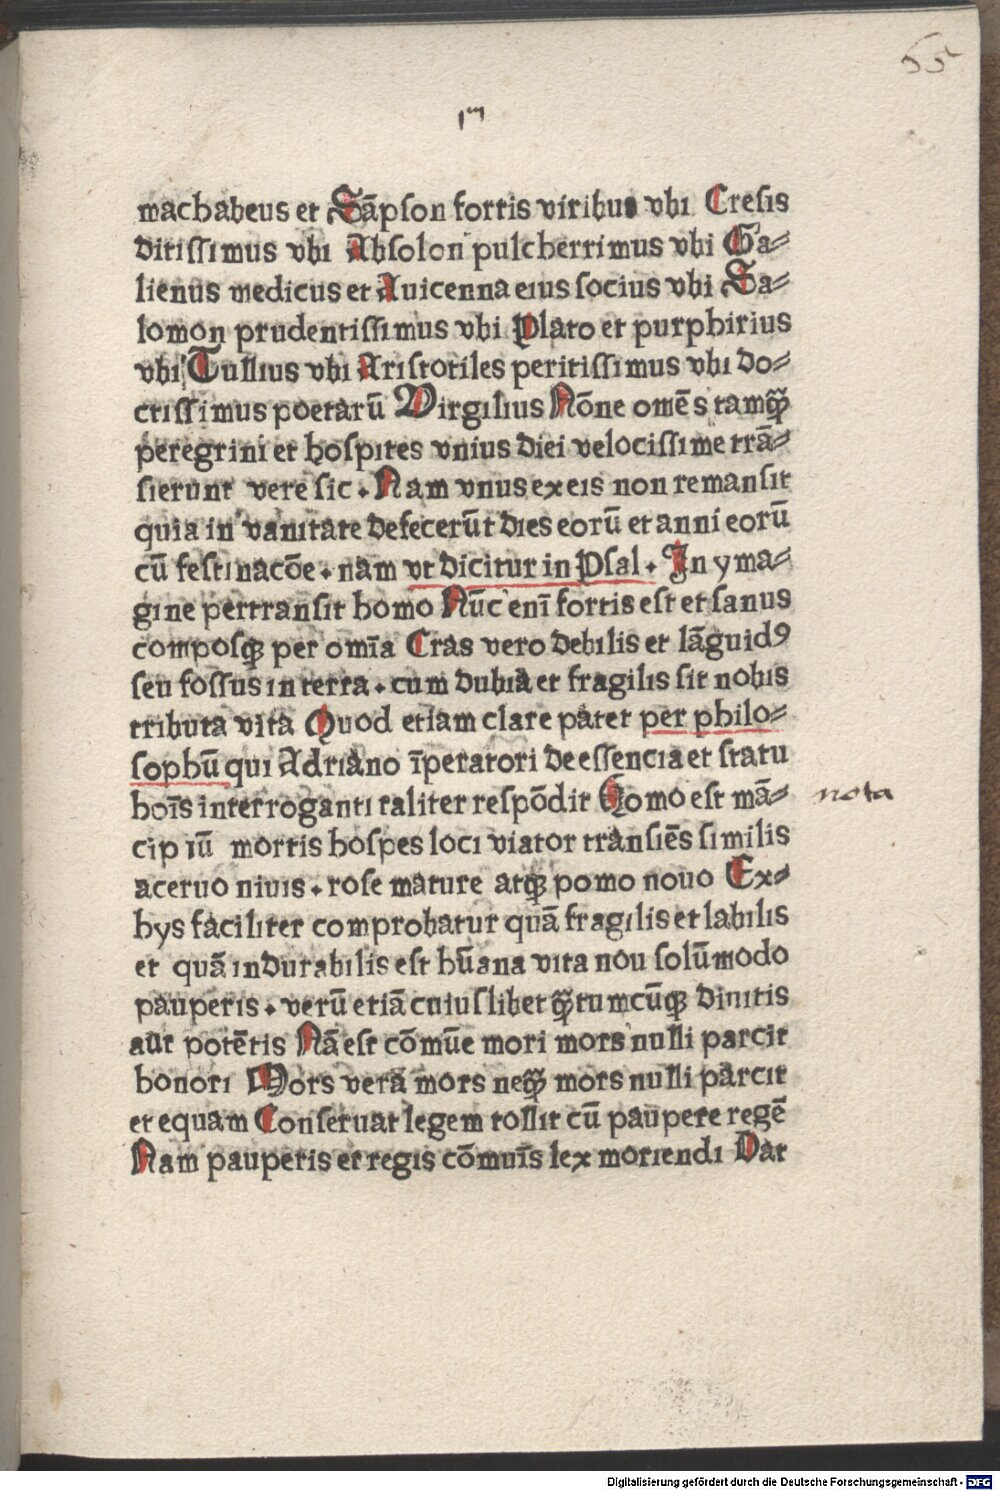 55
machabeus et Sāpson fortis viribus vbi Cresis
ditissimus vbi Absolon pulcherrimus vbi Ga⸗
lienus medicus et Auicenna eius socius vbi Sa⸗
lomon prudentissimus vbi Plato et purphirius
vbi Tullius vbi Aristotiles peritissimus vbi do⸗
ctissimus poetarū Virgilius Nōne omēs tamꝙ̄
peregrini et hospites vnius diei velocissime trā⸗
sierunt vere sic . Nam vnus ex eis non remansit
quia in vanitate defecerūt dies eorū et anni eorū
cū festinacōe . nam vt dicitur in Psal . In yma⸗
gine pertransit homo Nūc enī fortis est et sanus
composꝙ per omīa Cras vero debilis et lāguidꝯ
seu fossus in terra . cum dubia et fragilis sit nobis
tributa vita Quod etiam clare patet per philo⸗
sophū qui Adriano īperatori de essencia et statu
hoīs interroganti taliter respōdit Homo est mā⸗
nota
cipiū mortis hospes loci viator transiēs similis
aceruo niuis . rose mature atꝙ pomo nouo Ex⸗
hys faciliter comprobatur quā fragilis et labilis
et quā indurabilis est hūana vita nou solūmodo
pauperis . verū etiā cuiuslibet ꝙ̄tumcūꝙ diuitis
aut potētis Nā est cōmūe mori mors nulli parcit
honori Mors vera mors neꝙ̄ mors nulli parcit
et equam Conseruat legem tollit cū paupere regē
Nam pauperis et regis cōmuīs lex moriendi Dat
Digitalisierung gefördert durch die Deutsche Forschungsgemeinschaft - DFG